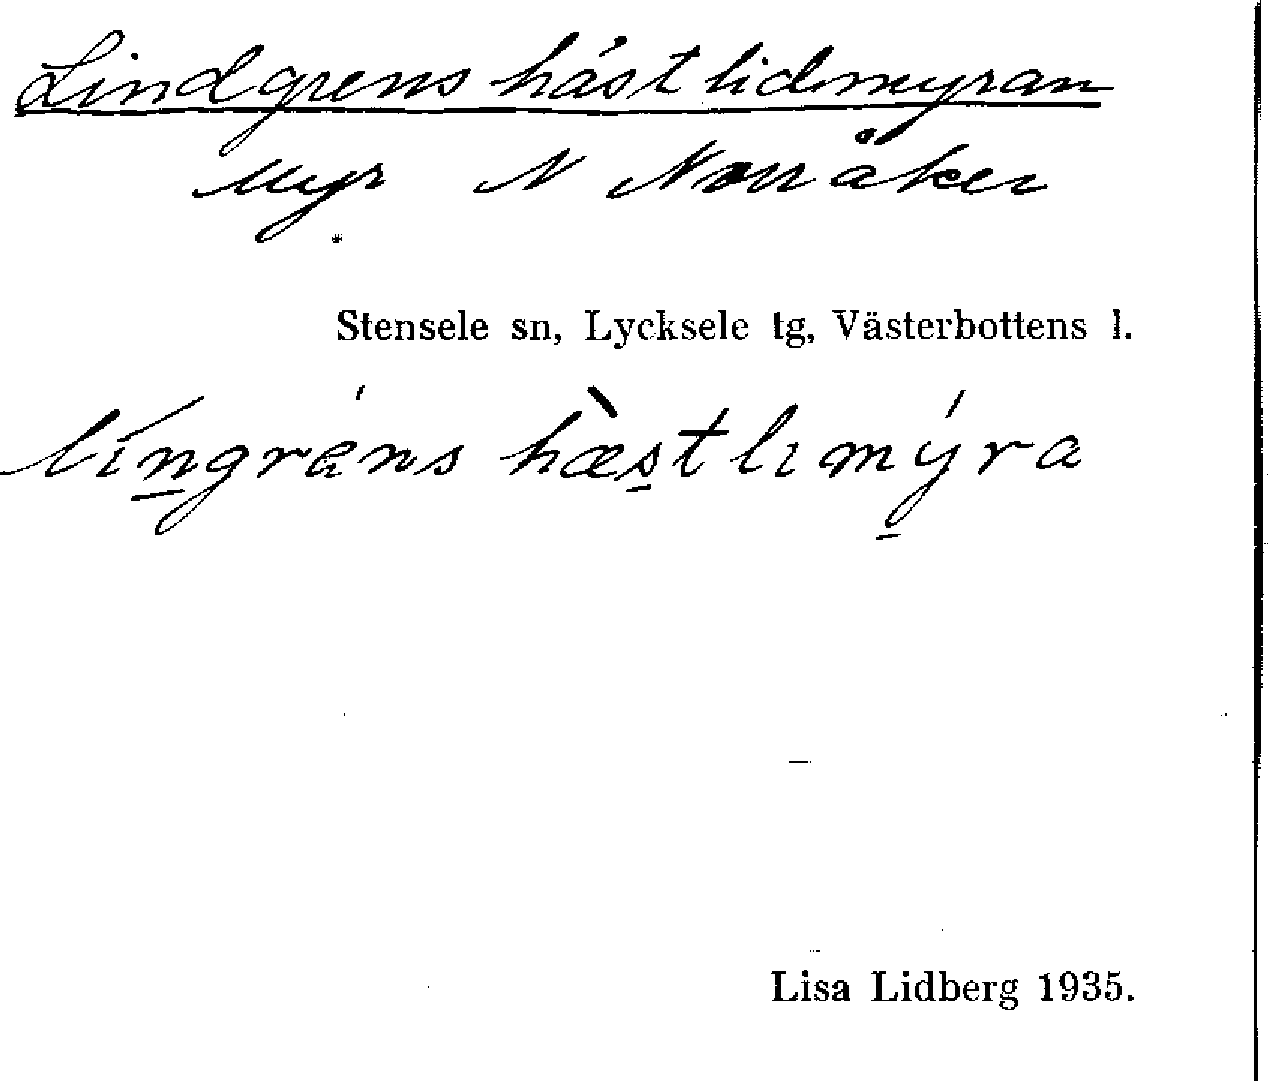 Lindgrens hästlidmyran
Myr N Norråker
Stensele sn, Lycksele tg, Västerbottens l.
língréns hæ̀stlımýra
Lisa Lidberg 1935.